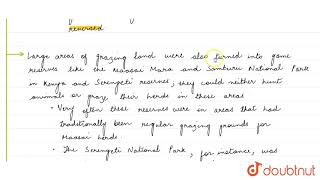 reversed
Large areas of grazing land were also turned into game
reserves like the Maasai Mara and Samburu National Park
in Kenya and Serengeti reserves; they could neither hunt
animals or graze their herds in these areas
• Very often these reserves were in areas that had
traditionally been regular grazing grounds for
Maasai herds.
• The Serengeti National Park, for instance, was
doubtnut